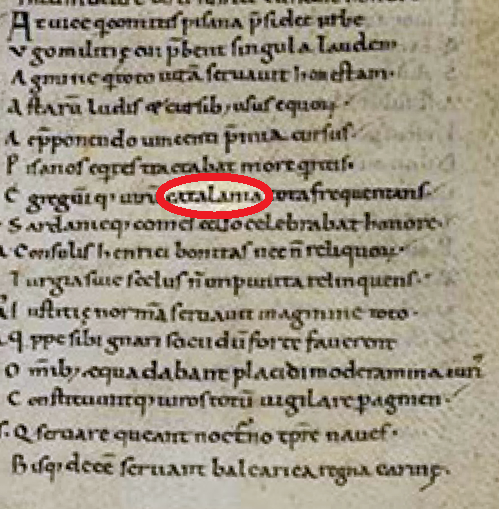 pisana p̄sidet urbe
Vgo militię cui p̄bent singula laudem
Agmine q toto uitā seruauit honestam.
Astarū ludis & cursib; usus equoꝝ.
p̄ponendo uincenti p̄mia cursus.
Pisanos eq̄tes tractabat more
Egregiū q; uirū catalania tota frequentans.
comes celebrabat honore.
Consulis henrici bonitas nec n̄ reliquoꝝ.
scelus relinquens.
Iustitię normā seruauit in agmine toto.
Qppe sibi gnari socii dū forte fauerent
Om̄ib; ęqua dabant placidi moderamina
Constituuntq; uiros totū uigilare p agmen.
Q seruare queant tp̄re naues.
Bisq; decē seruant balearica regna carinę.